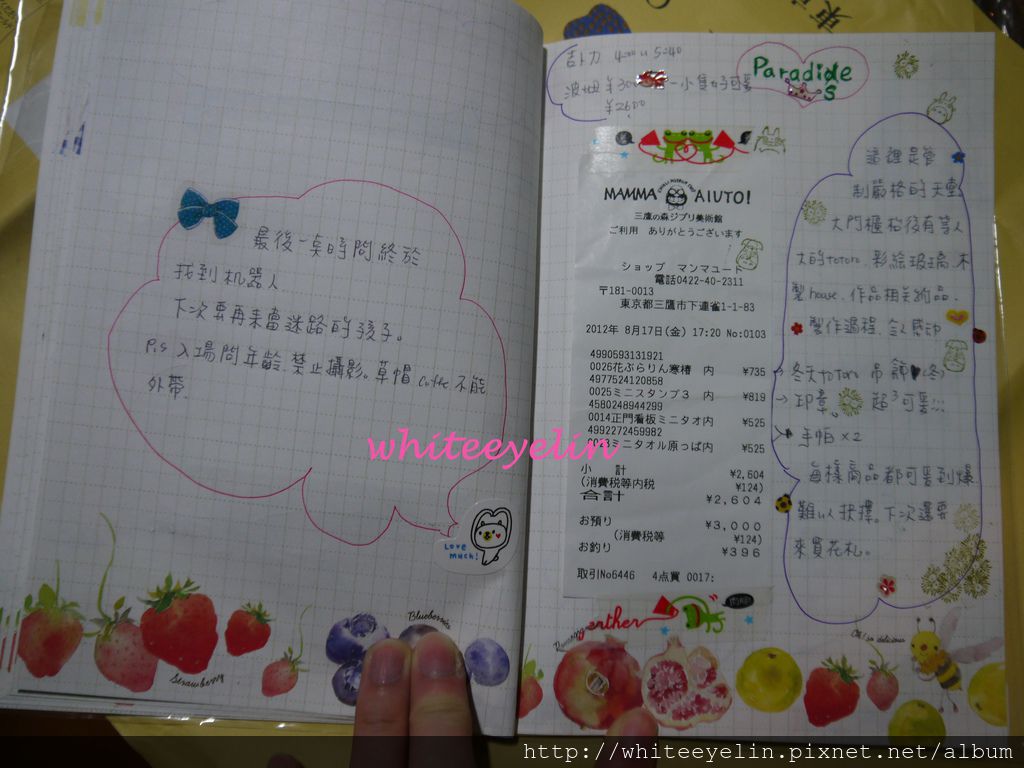 最後一點時間終於
找到机器人
下次要再來當迷路的孩子。
P.S 入場問年齡.禁止攝影。草帽 Coffe 不能
外帶.
Love
much!
Strawberry
Blueberries
whiteeyelin
¥2600
Paradise
MAMMA AIUTO!
三鷹の森ジブリ美術館
ご利用 ありがとうございます
ショップ マンマユート
電話0422-40-2311
〒181-0013
東京都三鷹市下連雀1-1-83
2012年 8月17日(金) 17:20 No:0103
4990593131921
0026花ぶらりん寒椿 内 ¥735
4977524120858
0025ミニスタンプ3 内 ¥819
4580248944299
0014正門看板ミニタオ内 ¥525
4992272459982
0023ミニタオル原っぱ内 ¥525
小 計 ¥2,604
(消費税等内税 ¥124)
合計 ¥2,604
お預り ¥3,000
(消費税等 ¥124)
お釣り ¥396
取引No6446 4点買 0017:
這裡是管
制嚴格的天堂
大門櫃枱後有等人
大的totoro.彩繪玻璃.木
製house.作品相關物品.
製作過程.令人感動
→ 冬天totoro 吊飾(冬)
→ 印章。 超可愛...
→ 手帕×2
每樣商品都可愛到爆
難以抉擇。下次還要
來買花札。
together
Oh! so delicious
http://whiteeyelin.pixnet.net/album